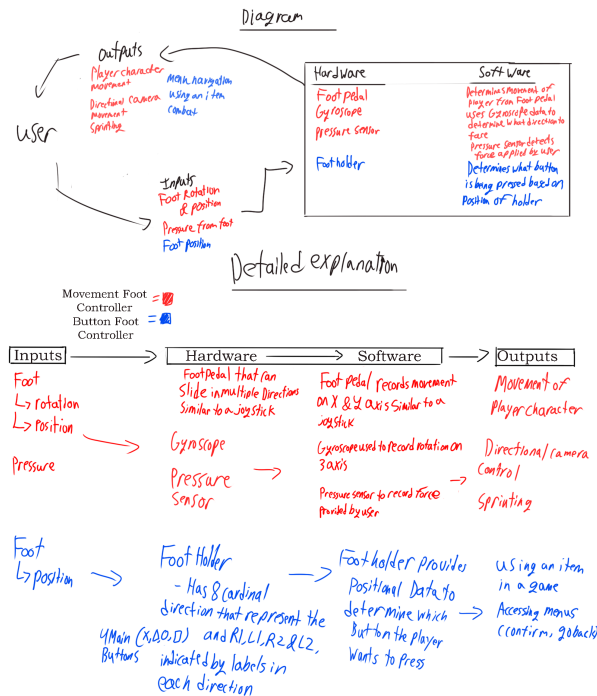 Diagram
Outputs
Player character
movement
Directional camera
movement
Sprinting
menu navigation
using an item
combat
user
Inputs
Foot Rotation
& position
Pressure from foot
Foot position
Hardware
Foot pedal
Gyroscope
Pressure sensor
Foot holder
Software
Determines movement of
player from Foot pedal
uses Gyroscope data to
determine what direction to
face
Pressure sensor detects
force applied by user
Determines what button
is being pressed based on
position of holder
Detailed explanation
Movement Foot
Controller
=
Button Foot
Controller
=
Inputs
Hardware
Software
Outputs
Foot
↳ rotation
↳ position
Pressure
Foot pedal that can
Slide in multiple Directions
Similar to a joystick
Gyroscope
Pressure
Sensor
Foot pedal records movement
on X & Y axis Similar to a
joystick
Gyroscope used to record rotation on
3 axis
Pressure sensor to record force
provided by user
Movement of
Player character
Directional camera
control
Sprinting
Foot
↳ position
Foot Holder
- Has 8 cardinal
direction that represent the
4 Main (X,Δ,O,□) and R1,L1,R2 & L2,
Buttons
indicated by labels in
each direction
Foot holder provides
Positional Data to
determine which
Button the player
Wants to Press
using an item
in a game
Accessing menus
(confirm, go back)